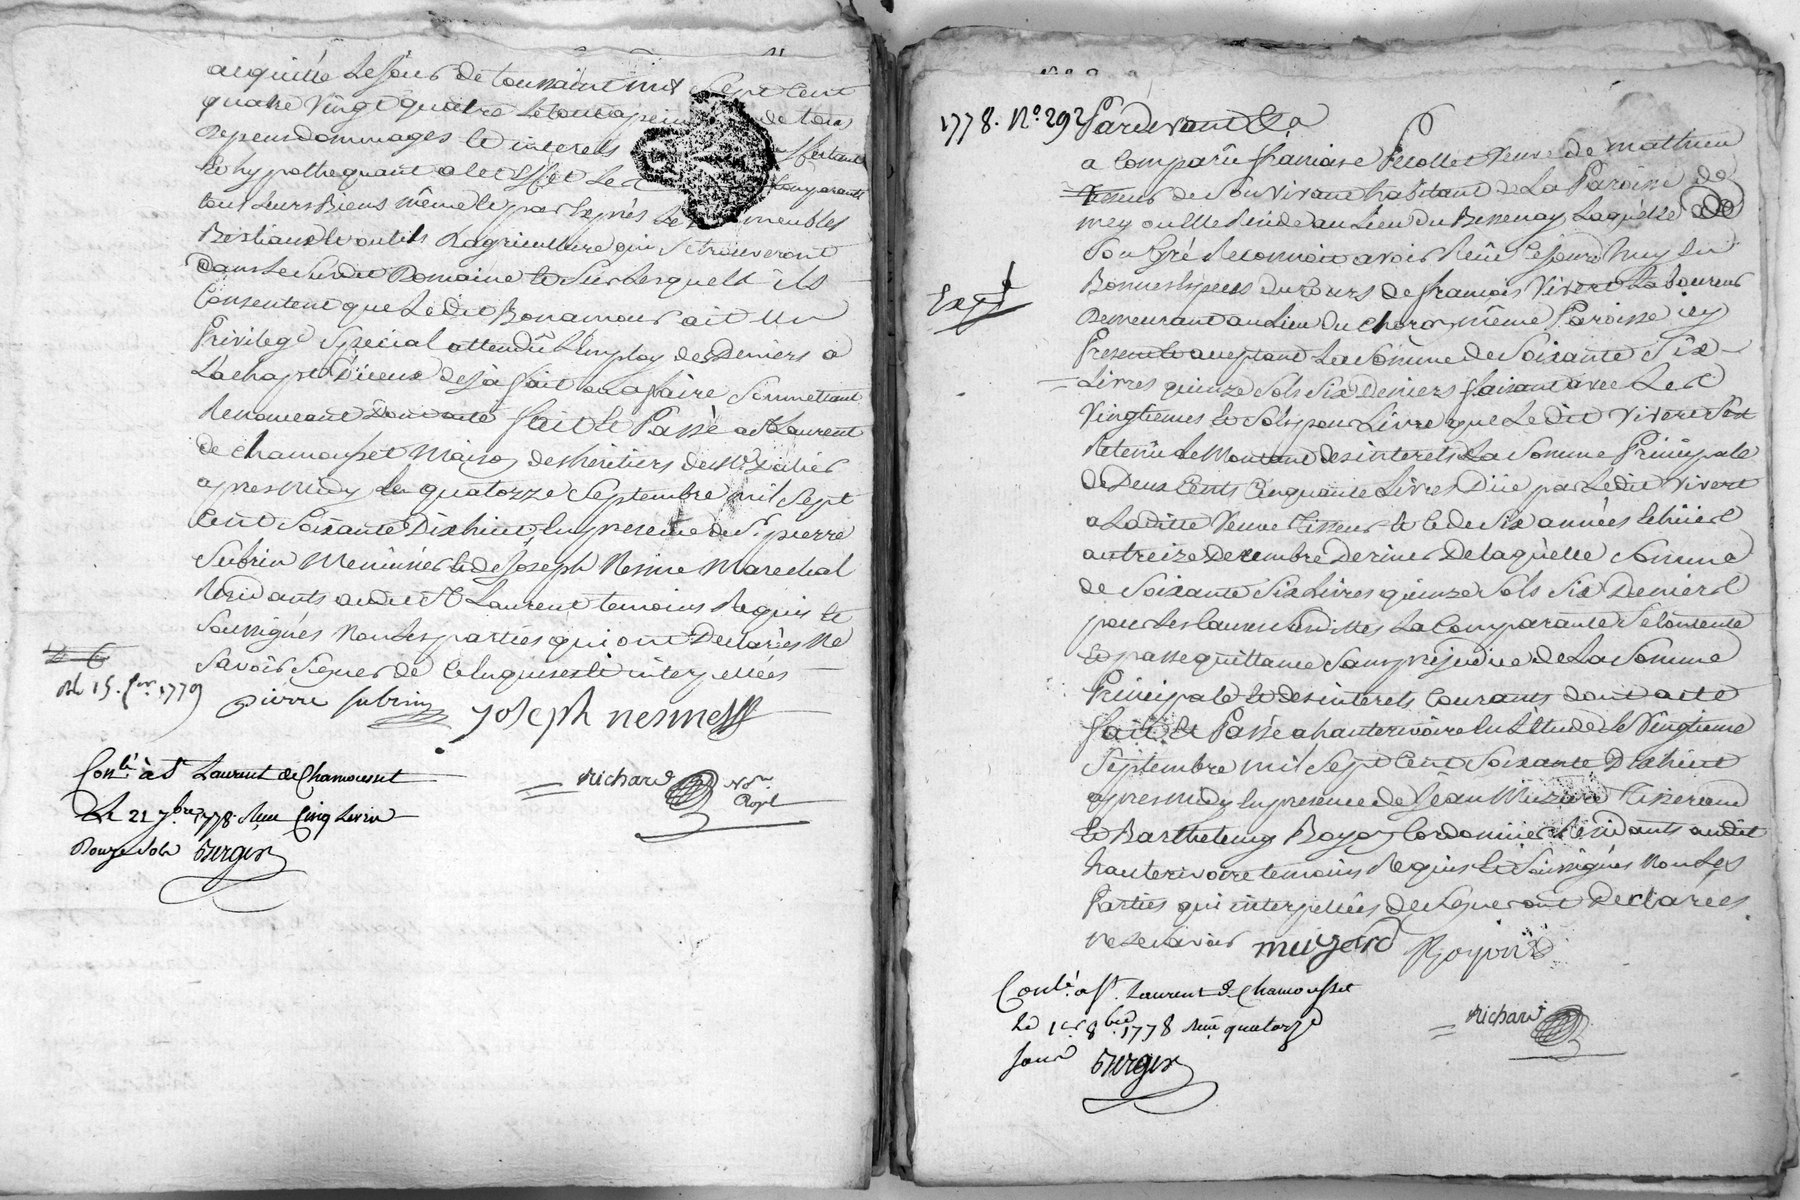 acquitté Le jour de toussaint mil Sept Cent
quatre vingt quatre Le tout a peine de tous
Depens dommages et interets
et hypothequant a cet Effet Les Comparants
tout Leurs Biens même et par Exprés Les meubles
Bestiaux et outils D'agriculture qui Se trouveront
dans Le Susdit Domaine et Sur Lesquels ils
Consentent que Le dit Bonamour ait Un
Privilege Special attendû L'Employ des Deniers a
L'achapt D'iceux deja fait ou a faire Soumettant
Renonceant Dont acte fait et Passé a St Laurent
de Chamousset Maison des heritiers de Mr
apres midy Le quatorze Septembre mil Sept
Cent Soixante Dixhuit En presence de Sr pierre
Subrin Menuisier et de Joseph Nesme Marechal
Residants audit St Laurent temoins Requis et
Soussignés Non Les parties qui ont Declarées Ne
Savoir Signer de Ce Enquises et interpellées
pierre subrin Joseph nesme
Rd 15. 1779
Conlé à St Laurent de Chamousset
Le 21 7bre 1778 Reçu Cinq Livres
Douze Sols Berger
Richard Nore
Royl
1778. N° 292 Pardevant &a
a Comparû françoise Pecollet Veuve de mathieu
Tisseur de Son Vivant habitant de La Paroisse de
mey ou Elle Reside au Lieu du Bessenay Laquelle de
Son Gré Reconnoit avoir Reçû Cejourd'huy En
Bonnes Especes du Cours de françois Vivert Laboureur
Demeurant au Lieu du Choron même Paroisse icy
Present et acceptant La Somme de Soixante Six
Livres quinze Sols Six Deniers faisant avec Les
Vingtiemes et Sols pour Livre que Le dit Vivert
Retenu Le Montant des interets La Somme Principale
de Deux Cents Cinquante Livres Düe par Ledit Vivert
a Laditte Veuve Tisseur et Ce de Six années Echûes
au treize Decembre Dernier De laquelle Somme
de Soixante Six Livres quinze Sols Six Deniers
pour Les Causes Susdittes La Comparante Se Contente
et passe quittance Sans prejudice de La Somme
Principale et des interets Courants dont acte
fait et Passé a hauterivoire En L'Etude Le Vingtieme
Septembre mil Sept Cent Soixante Dixhuit
apres midy En presence de Jean Muzard Tisserand
et Barthelemy Boyon Cordonnier Residants audit
hauterivoire temoins Requis et Soussignés Non Les
Parties qui interpellées de Signer ont Declarées
ne Le Savoir muzard Boyon
Expé
Conlé. a St. Laurent de Chamousset
Le 1er 8bre 1778 Reçu quatorze
Sous Berger
Richard